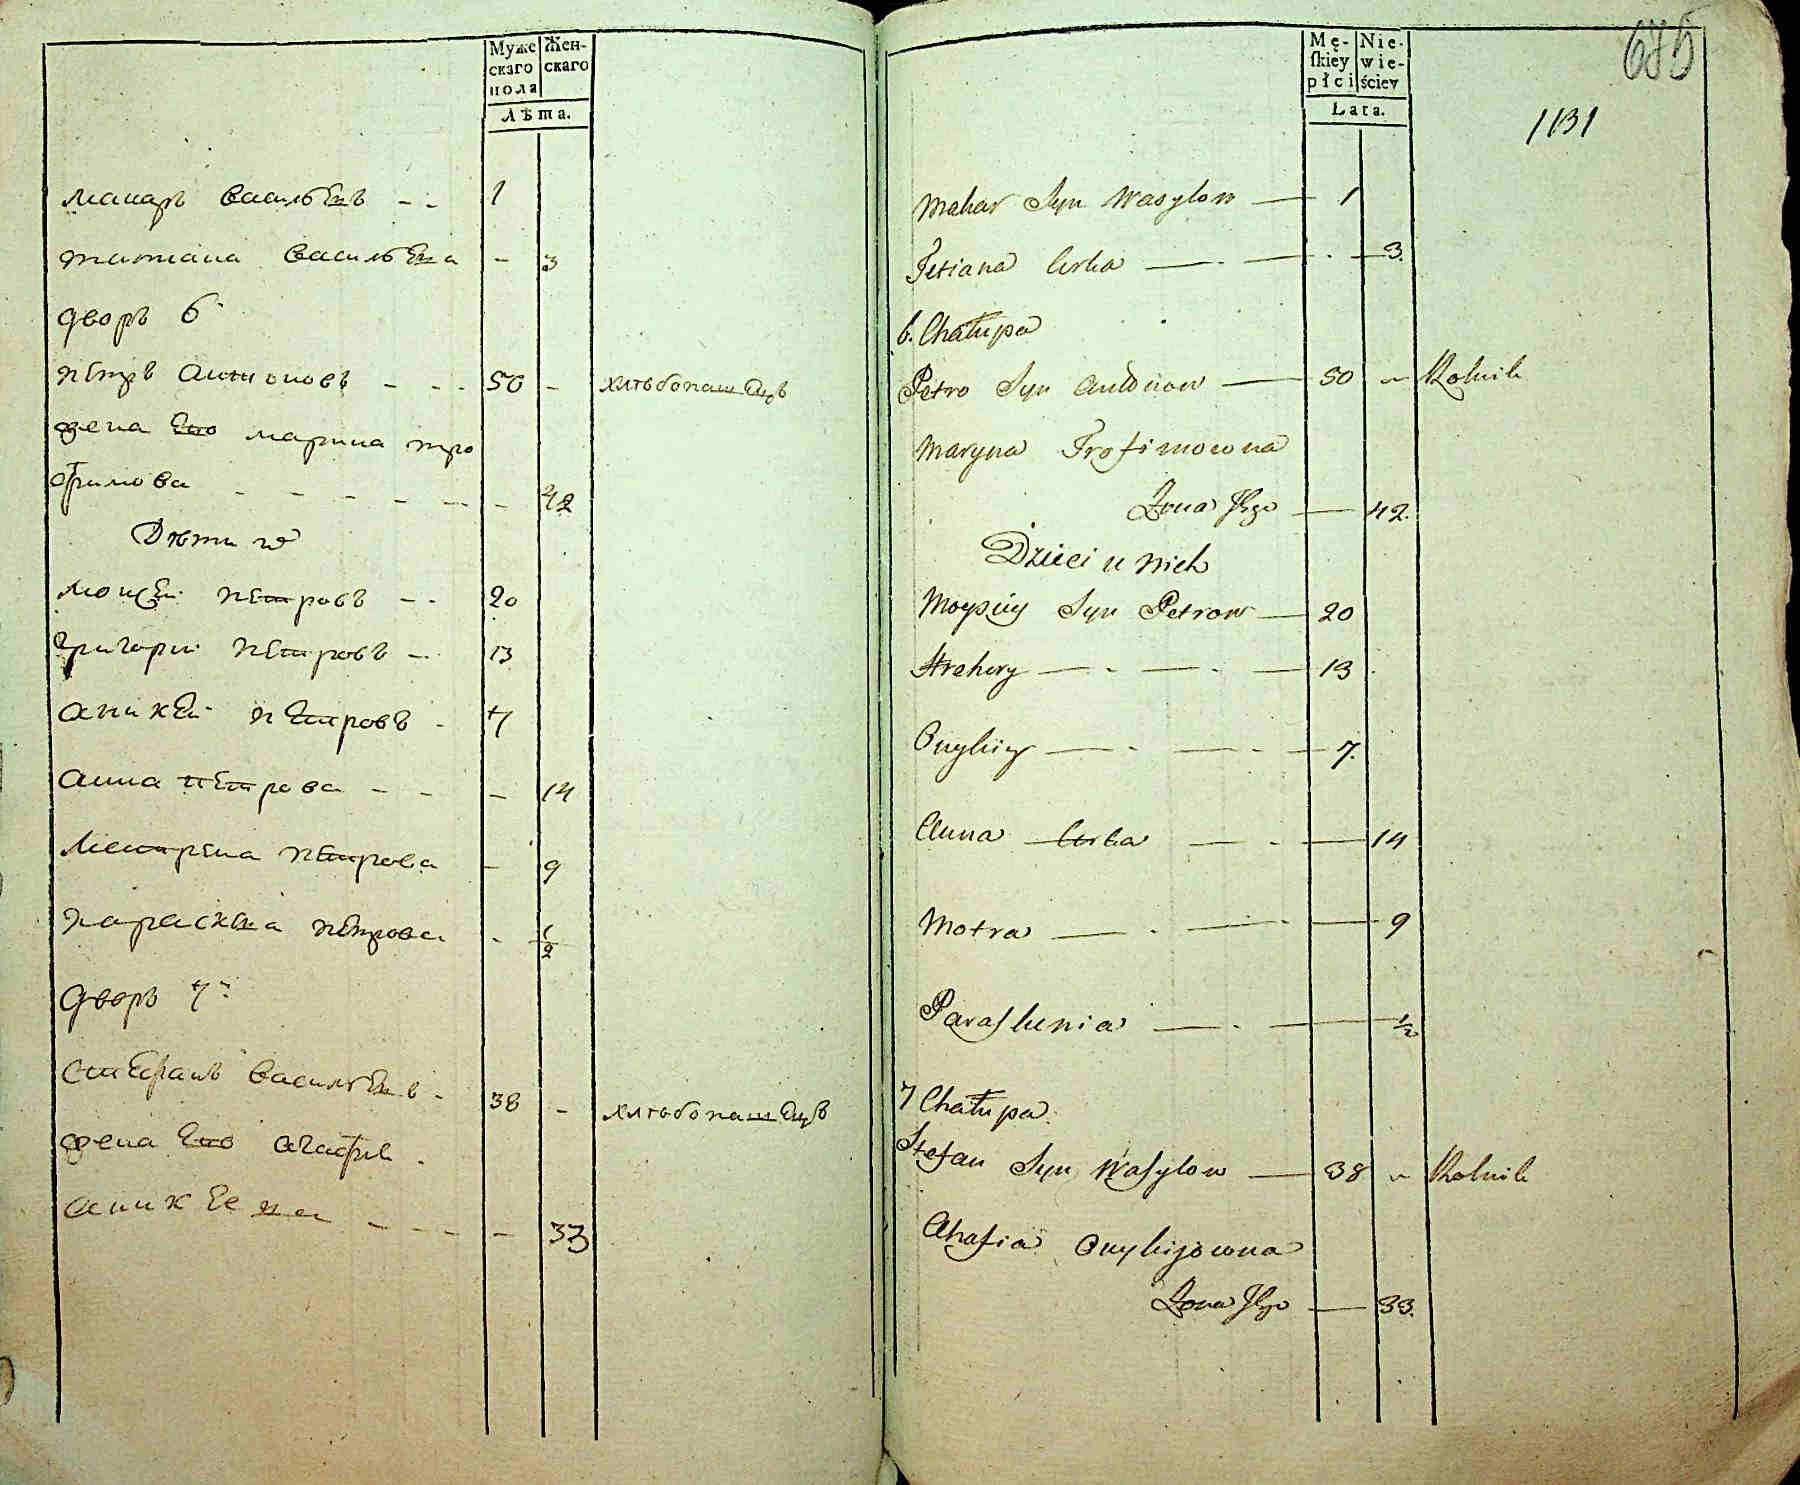 Муже Жен-
скаго скаго
пола
Лѣта.
Макаръ Васильевъ - - 1
Татиана Васильева - 3
дворъ 6й
Петръ Антоновъ - - - 50 - хлѣбопашецъ
жена его Марина Тро
фимова - - - - - - 42
Дѣти их
Моисей Петровъ - - 20
Григорий Петровъ - 13
Аникей Петровъ - 7
Анна Петрова - - - 14
Мотрена Петрова - 9
Параскева Петрова - 1/2
дворъ 7й
Стефанъ Васильевъ - 38 - хлѣбопашецъ
жена его Агафия
Аникеева - - - - 33
Mę- Nie-
ſkiey wie-
płci ściey
Lata.
685
1131
Makar Syn Wasylow — 1
Tetiana Corka — - — - — 3.
6. Chałupa
Petro Syn Antonow — 50 Rolnik
Maryna Trofimowna
Żona Jego — 42.
Dzieci u nich
Moysiey Syn Petrow — 20
Hrehory — - — - — 13
Onykiy — - — - — 7.
Anna Corka — - — 14
Motra — - — - — 9
Paraſkenia — - — 1/2
7 Chałupa.
Stefan Syn Waſylow — 38 Rolnik
Ahafia Onykijowna
Żona Jego — 33.